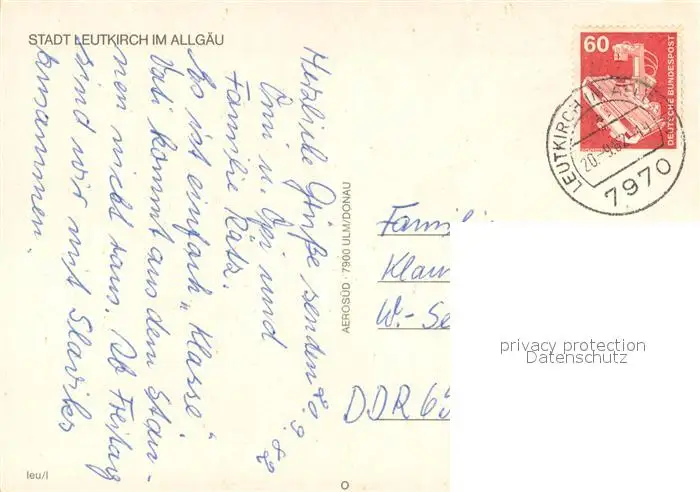 STADT LEUTKIRCH IM ALLGÄU
Herzliche Grüße senden
Omi u. Opi und
Familie Rätz.
Es ist einfach "Klasse".
Vati kommt aus dem Stau-
nen nicht raus. Ab Freitag
sind wir mit Slaviks
zusammen.
20.9.82
AEROSÜD · 7900 ULM/DONAU
leu/l
60
DEUTSCHE BUNDESPOST
LEUTKIRCH IM ALL
20.-9.82
7970
Famil
Klau
W.-Se
DDR 65
privacy protection
Datenschutz